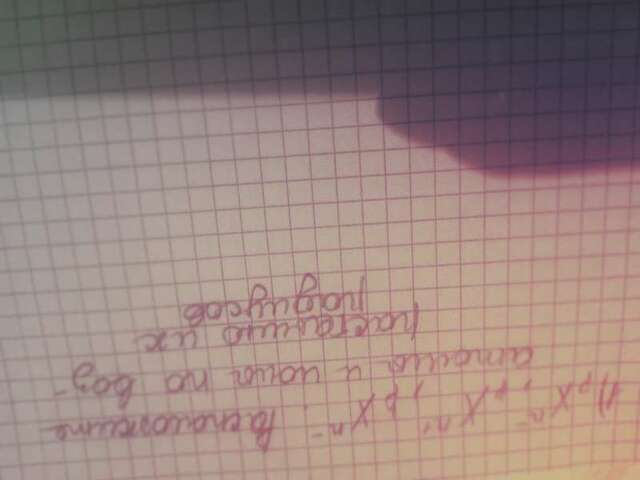 1) pXⁿ⁻, pXⁿ⁺, pXⁿ⁻. Расположите
атомы и ионы по воз-
растанию их
радиусов